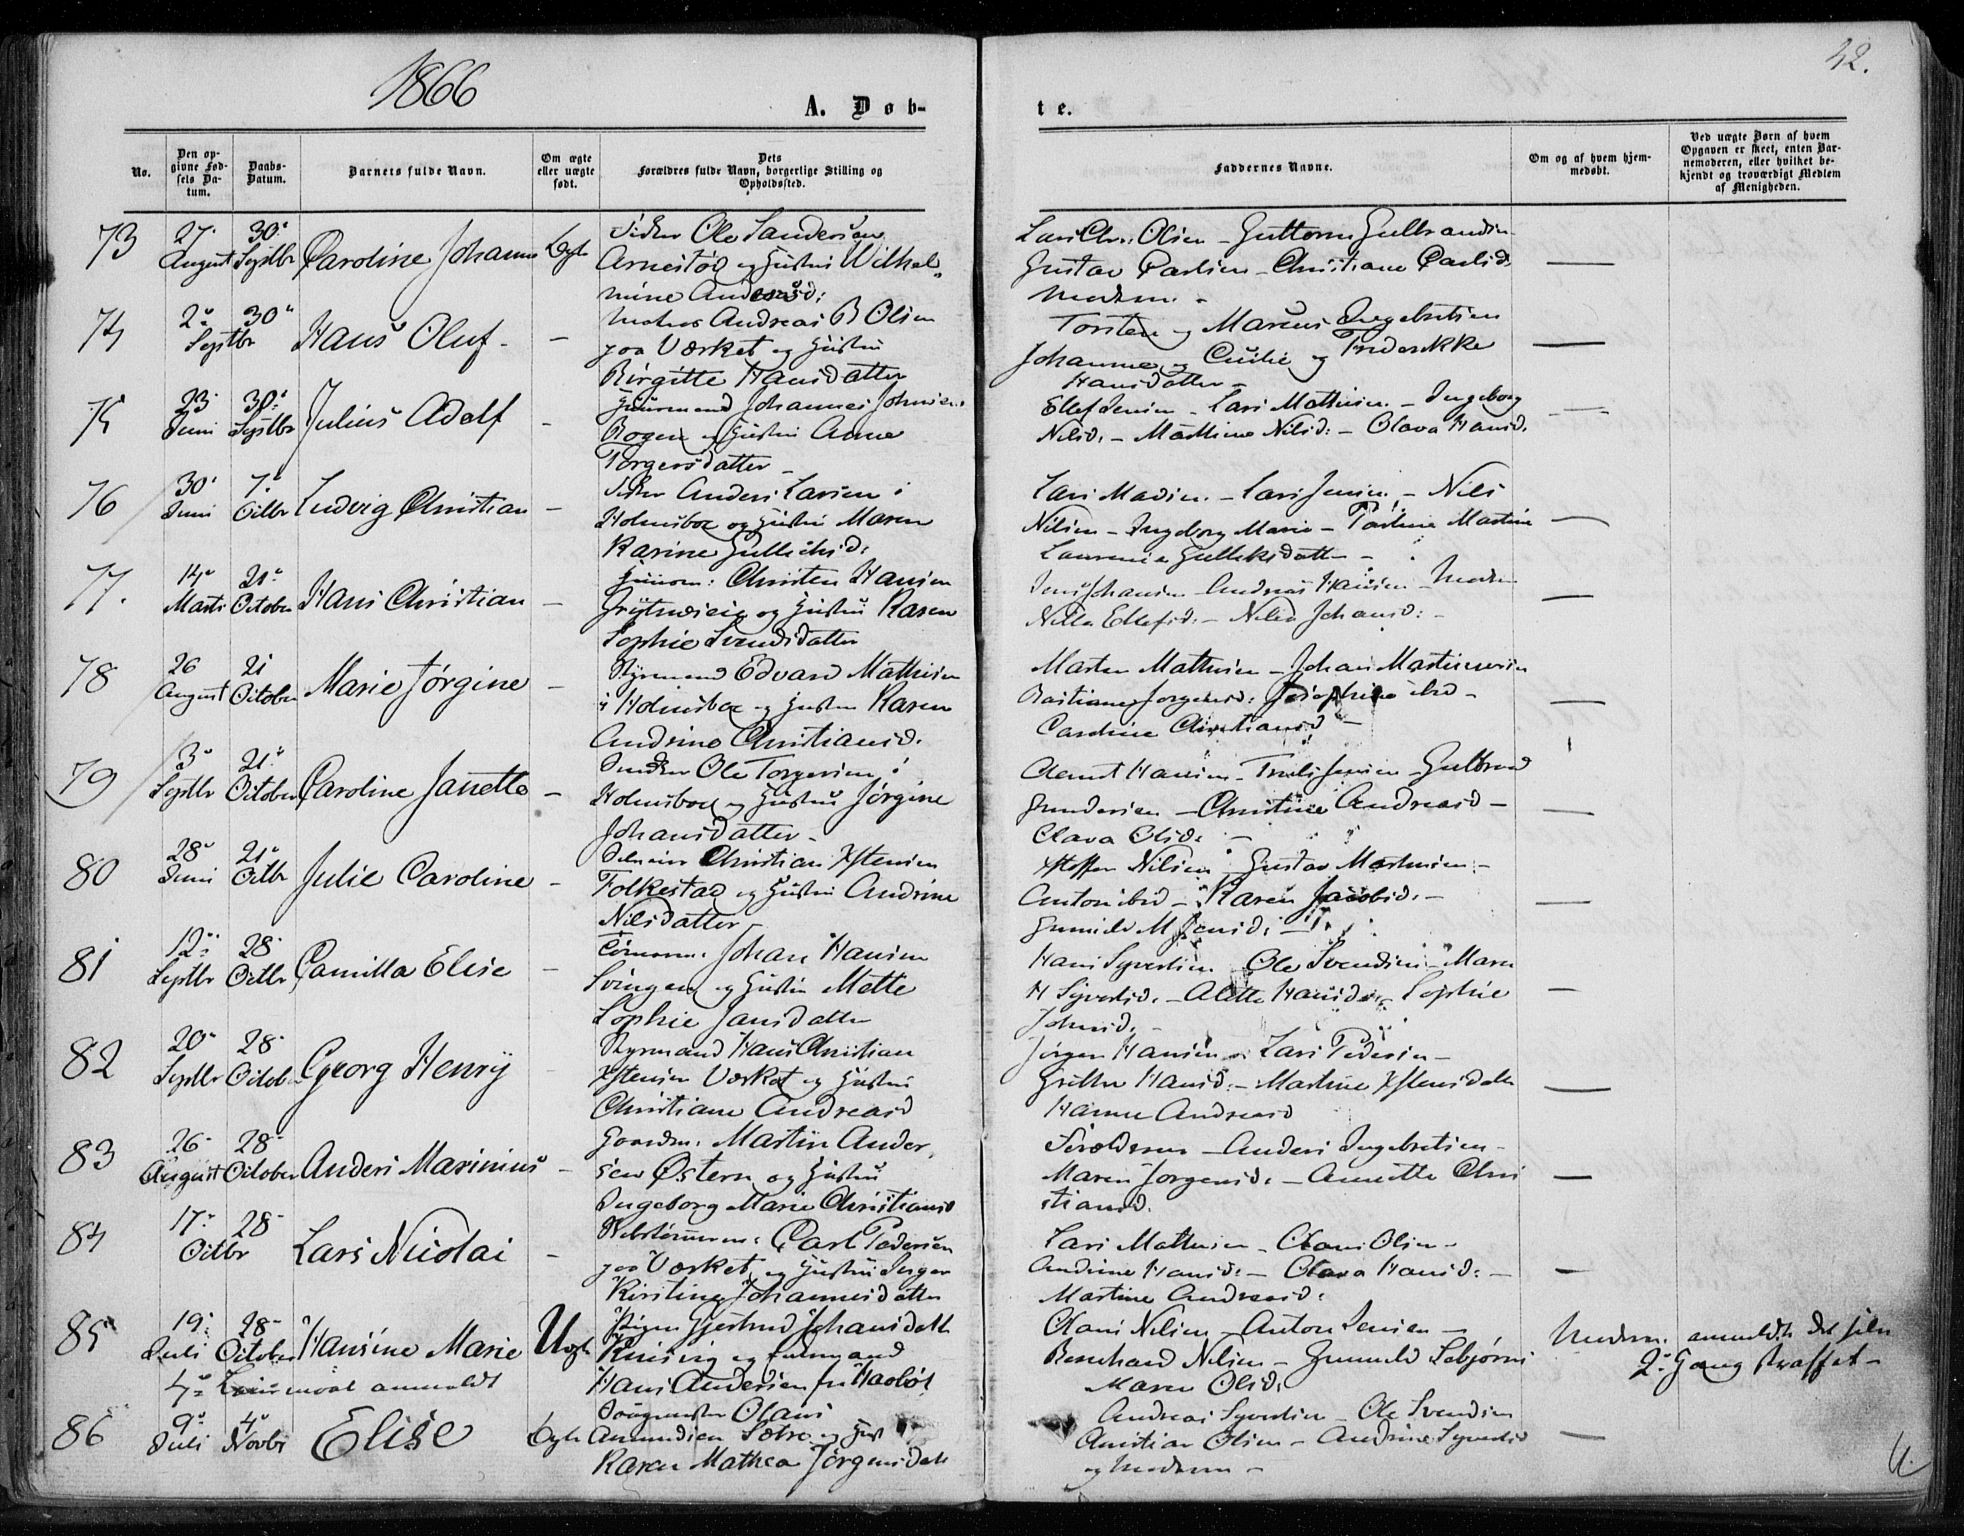 1866
42.
A. Døb-
te.
No.
Den op-
givne Fød-
sels Da-
tum.
Daabs-
Datum.
Barnets fulde Navn.
Om ægte
eller uægte
født.
Dets
Forældres fulde Navn, borgerlige Stilling og
Opholdssted.
Faddernes Navne.
Om og af hvem hjem-
medøbt.
Ved uægte Børn af hvem
Opgaven er skeet, enten Bar-
nemoderen, eller hvilket be-
kjendt og troværdigt Medlem
af Menigheden.
73 27. August 30. Septbr Caroline Johanne Ægte
Fisker Ole Sandersen
Arnestød og Hustru Wilhel-
mine Andersd:
Lars Chr. Olsen - Guttorm Gulbrandsen
Gustav Carlsen - Christiane Carlsd.
Moderen -
74 2. 30. Septbr Hans Oluf -
Andreas B Olsen
paa Værket og Hustru
Birgitte Hansdatter
Torsten og Marcus Ingebretsen
Johanne og Cecilie og Frederikke
Hansdatter -
75 23. Juni 30. Septbr Julius Adolf -
Huusmand Johannes Johnsen
Bogen og Hustru Anne
Torgersdatter -
Ellef Jensen - Lars Mathisen - Ingeborg
Nilsd. - Mathine Nilsd: - Olava Hansd.
76 30. Juni 7. Octbr Ludvig Christian -
Fisker Anders Larsen i
Holmsboe og Hustru Maren
Karine Gulliksd:
Lars Madsen - Lars Jensen - Nils
Nilsen - Ingeborg Marie - Martine
Gulliksdatter -
77. 14. Marts 21. October Hans Christian -
Huusm: Christen Hansen
og Hustru Karen
Sophie Svendsdatter
Jens Johansen - Andreas Hansen - Modern
Nilla Ellefsd. - Johansd: -
78 26 August 21 October Marie Jørgine -
Styrmand Edvard Mathisen
i Holmsboe og Hustru Karen
Andrine Christiansd.
Morten Mathisen - Johan Martinusen
Bastiane Jørgensd: Josephine ibd -
Caroline Christiansd -
79 3. Septbr 21. October Caroline Janette -
Ole Torgersen i
Holmsboe og Hustru Jørgine
Johansdatter -
Clemet Hansen - Truls Jensen - Gulbrand
Gundersen - Christine Andreasd -
Olava Olsd. -
80 28. Juni 21. Octbr Julie Caroline -
Christian Xstensen
Folkestad og Hustru Andrine
Nilsdatter
Xstoffer Nilsen Gustav Martinsen -
Anton ibd - Karen Jacobsd. -
Gunild M Jensd: -
81 12. Septbr 28. Octbr Camilla Elise -
Tømmerm. Johan Hansen
Svingen og Hustru Mette
Sophie Jansdatter
Hans Syvertsen Ole Svendsen - Maren
H Syvertsd. - Alette Hansd. - Sophie
Johnsd. -
82 20. Septbr 28. October Georg Henry
Styrmand Hans Christian
Xstensen Værket og Hustru
Christiane Andreasd
Jørgen Hansen - Lars Pedersen -
Grethe Hansd. - Martine Xstensdatter
Hanne Andreasd
83 26. August 28. October Anders Marinius -
Gaardm. Martin Ander-
sen Østern og Hustru
Ingeborg Marie Christiansd
Forældrene - Anders Ingebretsen -
Maren Jørgensd. - Annette Chri
stiansd.
84 17. 28. Octbr Lars Nicolai -
Carl Pedersen
paa Værket og Hustru Inger
Kirstine Johannesdatter
Lars Mathisen - Claus Olsen -
Andrine Hansd: - Olava Hansd: -
Martine Andreasd.
85 19. Juli 28. October Hansine Marie Uægte
Pigen Gjertrud Johansdatter
og Ungmand
Hans Andersen fra
4. anmeldt
Olaus Nilsen - Anton Jensen -
Bernhard Nilsen - Gunnild
Maren Olsd.
Moderen anmeldte det selv
2. Gang straffet -
86 9. Juli 4. Novbr Elise Ægte
Olaus
Amundsen Sætre og Hust
Karen Mathea Jørgensdatter
Andreas Syvertsen - Ole Svendsen
Christian Olsen - Andrine Syvertsd
og Moderen -